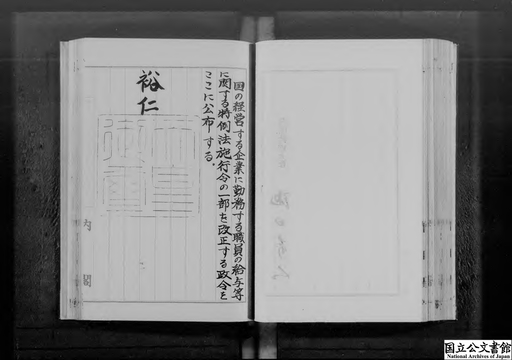 国の経営する企業に勤務する職員の給与等
に関する特例法施行令の一部を改正する政令を
ここに公布する。
裕仁
内閣
国立公文書館
National Archives of Japan